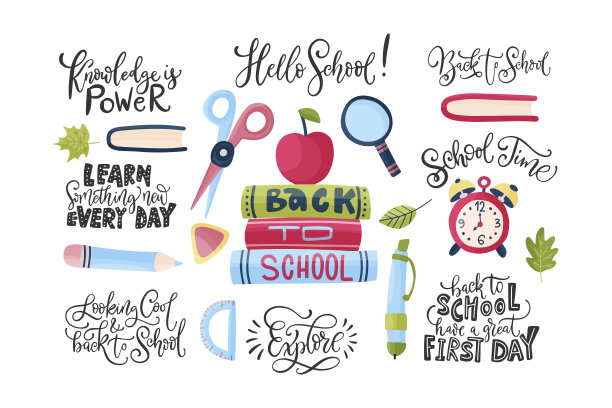 Knowledge is
POWER
Hello School!
Back to School
School Time
LEARN
Something new
EVERY DAY
BACK
TO
SCHOOL
12
9 3
6
Looking Cool
&
back to School
Explore
back to
SCHOOL
have a great
FIRST DAY